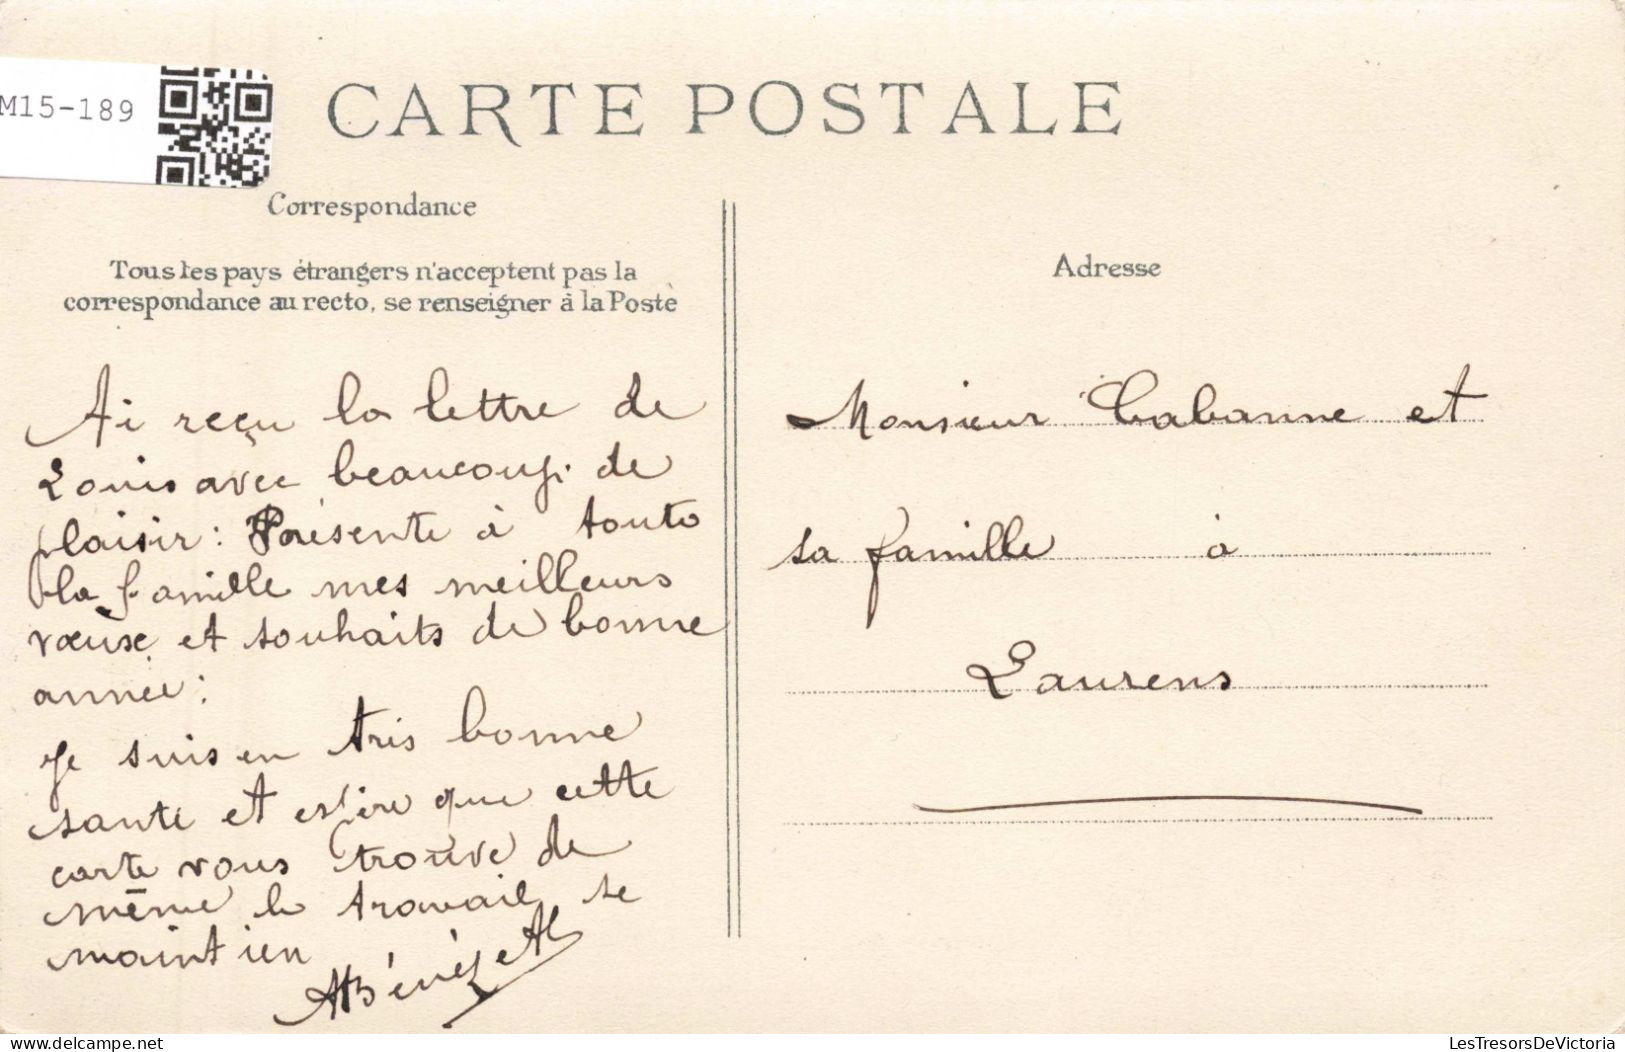 M15-189
CARTE POSTALE
Correspondance
Tous les pays étrangers n'acceptent pas la
correspondance au recto, se renseigner à la Poste
Adresse
Ai reçu la lettre de
Louis avec beaucoup de
plaisir : Présente à toute
la famille mes meilleurs
vœux et souhaits de bonne
année :
Je suis en très bonne
santé et espère que cette
carte vous trouve de
même le travail se
maintien
ABénézet
Monsieur Cabanne et
sa famille à
Laurens
LesTresorsDeVictoria
delcampe.net